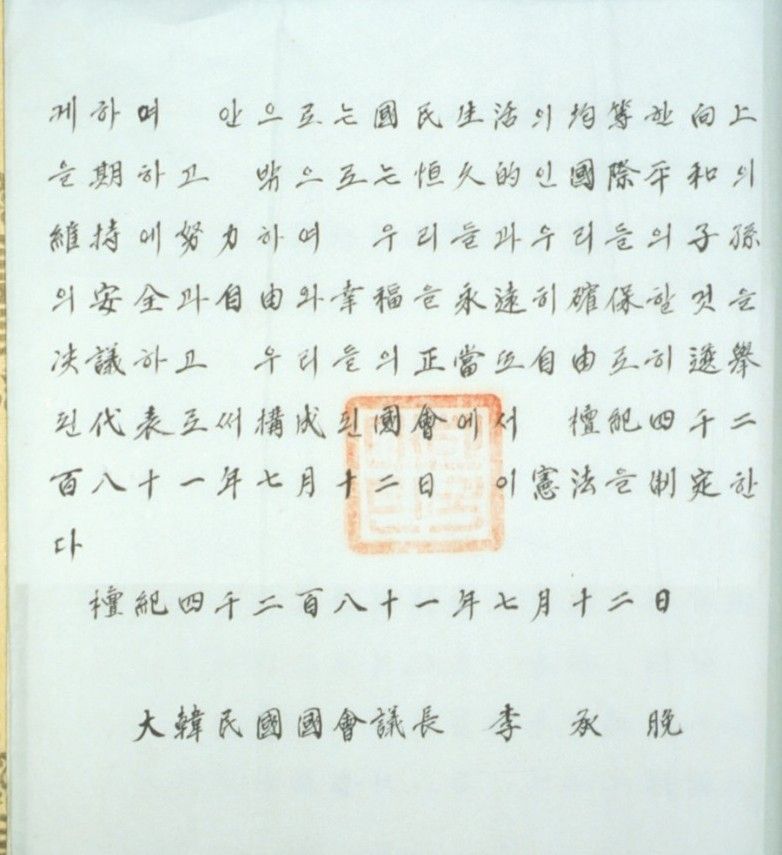 게하며 안으로는國民生活의均等한向上
을期하고 밖으로는恒久的인國際平和의
維持에努力하여 우리들과우리들의子孫
의安全과自由와幸福을永遠히確保할것을
决議하고 우리들의正當또自由로히選擧
된代表로써構成된國會에서 檀紀四千二
百八十一年七月十二日 이憲法을制定한
다
檀紀四千二百八十一年七月十二日
大韓民國國會議長 李 承 晩